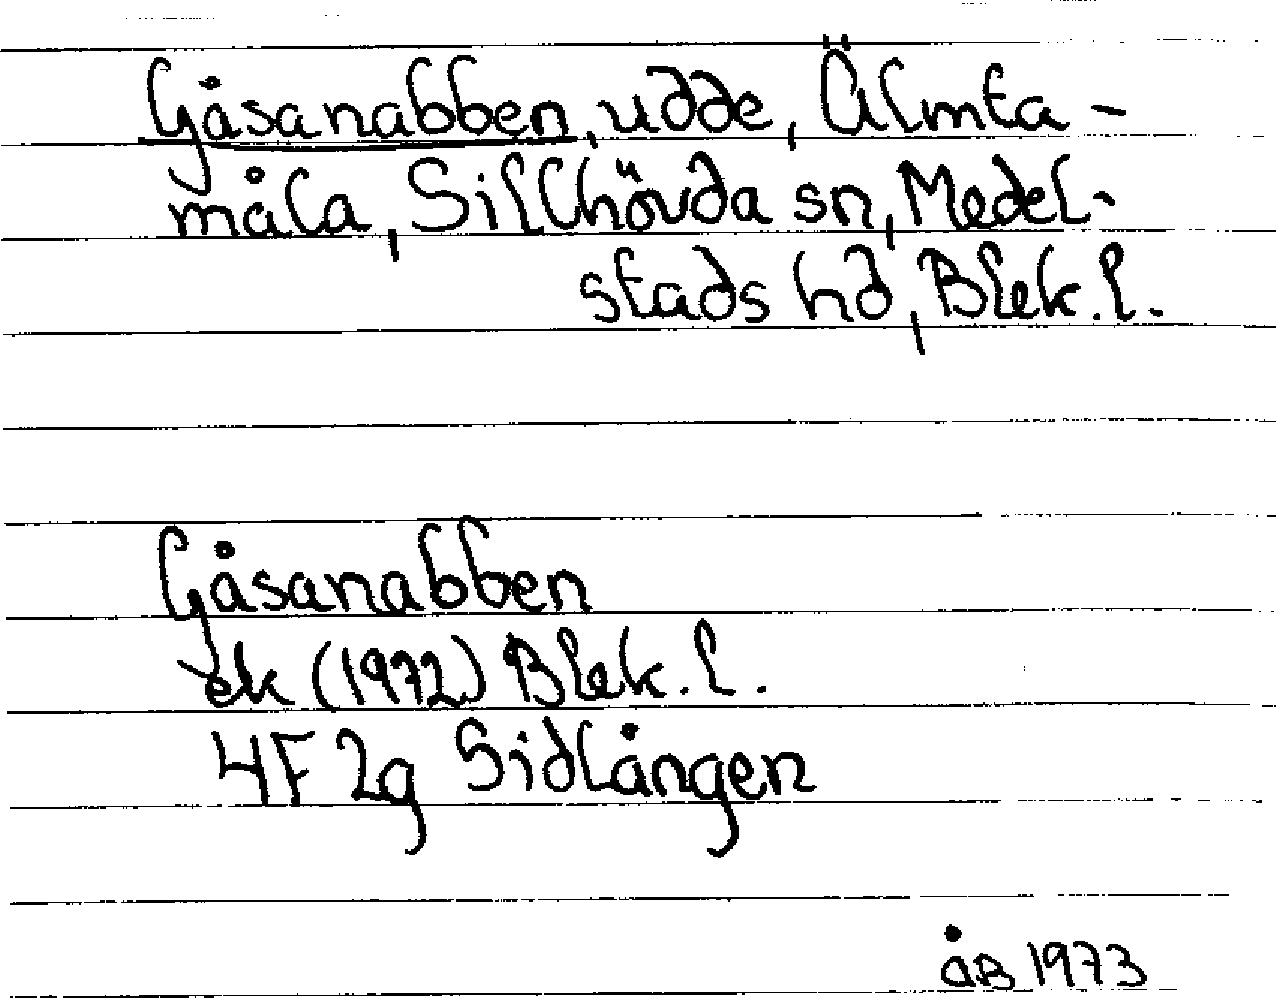 Gåsanabben, udde, Älmta-
måla, Sillhövda sn, Medel-
stads hd, Blek. l.
Gåsanabben
ek (1972) Blek. l.
4F 2g Sidlången
åB 1973